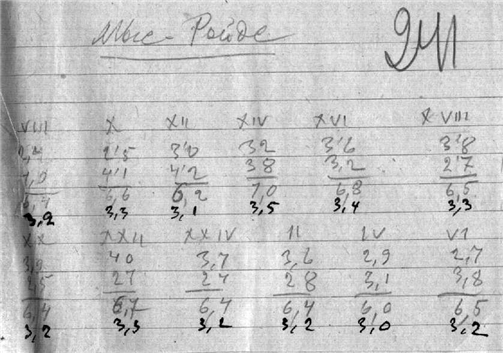 Мыс-Ройде
241
VIII X XII XIV XVI XVIII
2'5 3'0 3,2 3'6 3'8
4'1 4'2 3,8 3,2 2'7
6,6 6,2 7,0 6,8 6,5
3,2 3,3 3,1 3,5 3,4 3,3
XX XXII XXIV II IV VI
3,9 40 3,7 3,6 2,9 2,7
2,5 27 27 28 3,1 3,8
6,4 6,7 6,4 6,4 6,0 6,5
3,2 3,3 3,2 3,2 3,0 3,2